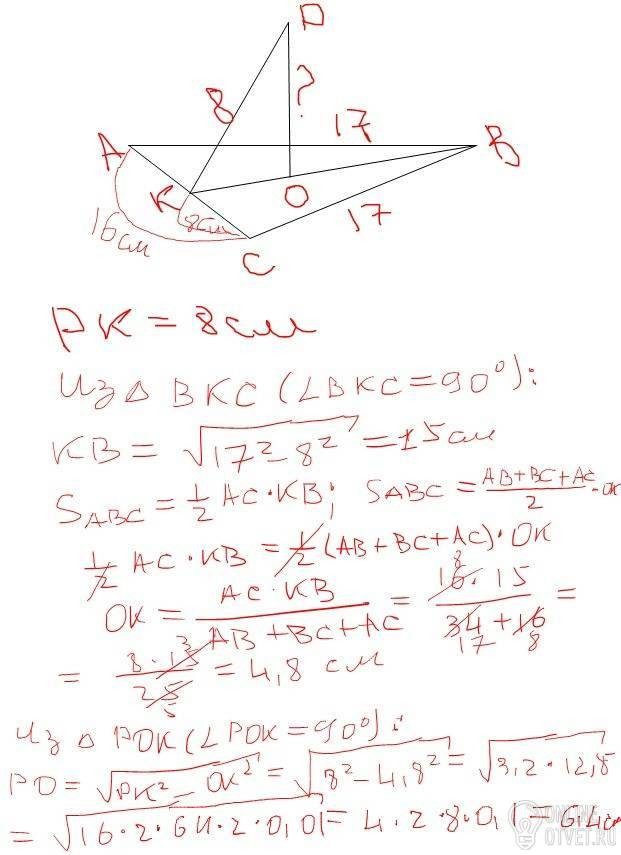 P
8
?
17
A
B
K
O
8см
17
16см
C
PK = 8см
Из △ BKC (∠BKC = 90°):
KB = √17² - 8² = 15см
S ABC = 1/2 AC · KB; S ABC = (AB + BC + AC)/2 · OK
1/2 AC · KB = 1/2 (AB + BC + AC) · OK
OK = (AC · KB)/(AB + BC + AC) = (16 · 15)/(34 + 16) = 8 17 8
= (8 · 15)/25 = 4,8 см 3 5
Из △ POK (∠POK = 90°):
PO = √PK² - OK² = √8² - 4,8² = √3,2 · 12,8
= √16 · 2 · 64 · 2 · 0,01 = 4 · 2 · 8 · 0,1 = 6,4см
ONLINE
OTVET.RU